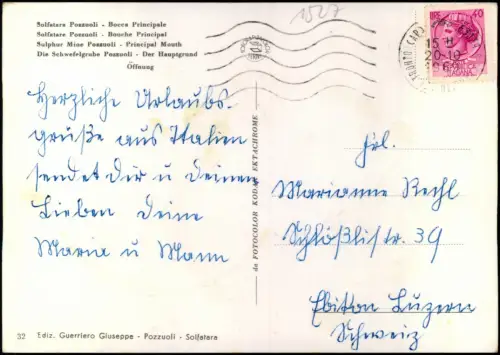 Solfatara Pozzuoli - Bocca Principale
Solfatare Pozzuoli - Bouche Principal
Sulphur Mine Pozzuoli - Principal Mouth
Die Schwefelgrube Pozzuoli - Der Hauptgrund
Öffnung
1527
40
15-H
20-10
Herzliche Urlaubs-
grüße aus Italien
sendet Dir u Deinen
Lieben Deine
Maria u Mann
da FOTOCOLOR KODAK EKTACHROME
Frl.
Marianne Rechl
Schlößlistr. 39
Ebikon Luzern
Schweiz
32 Ediz. Guerriero Giuseppe - Pozzuoli - Solfatara